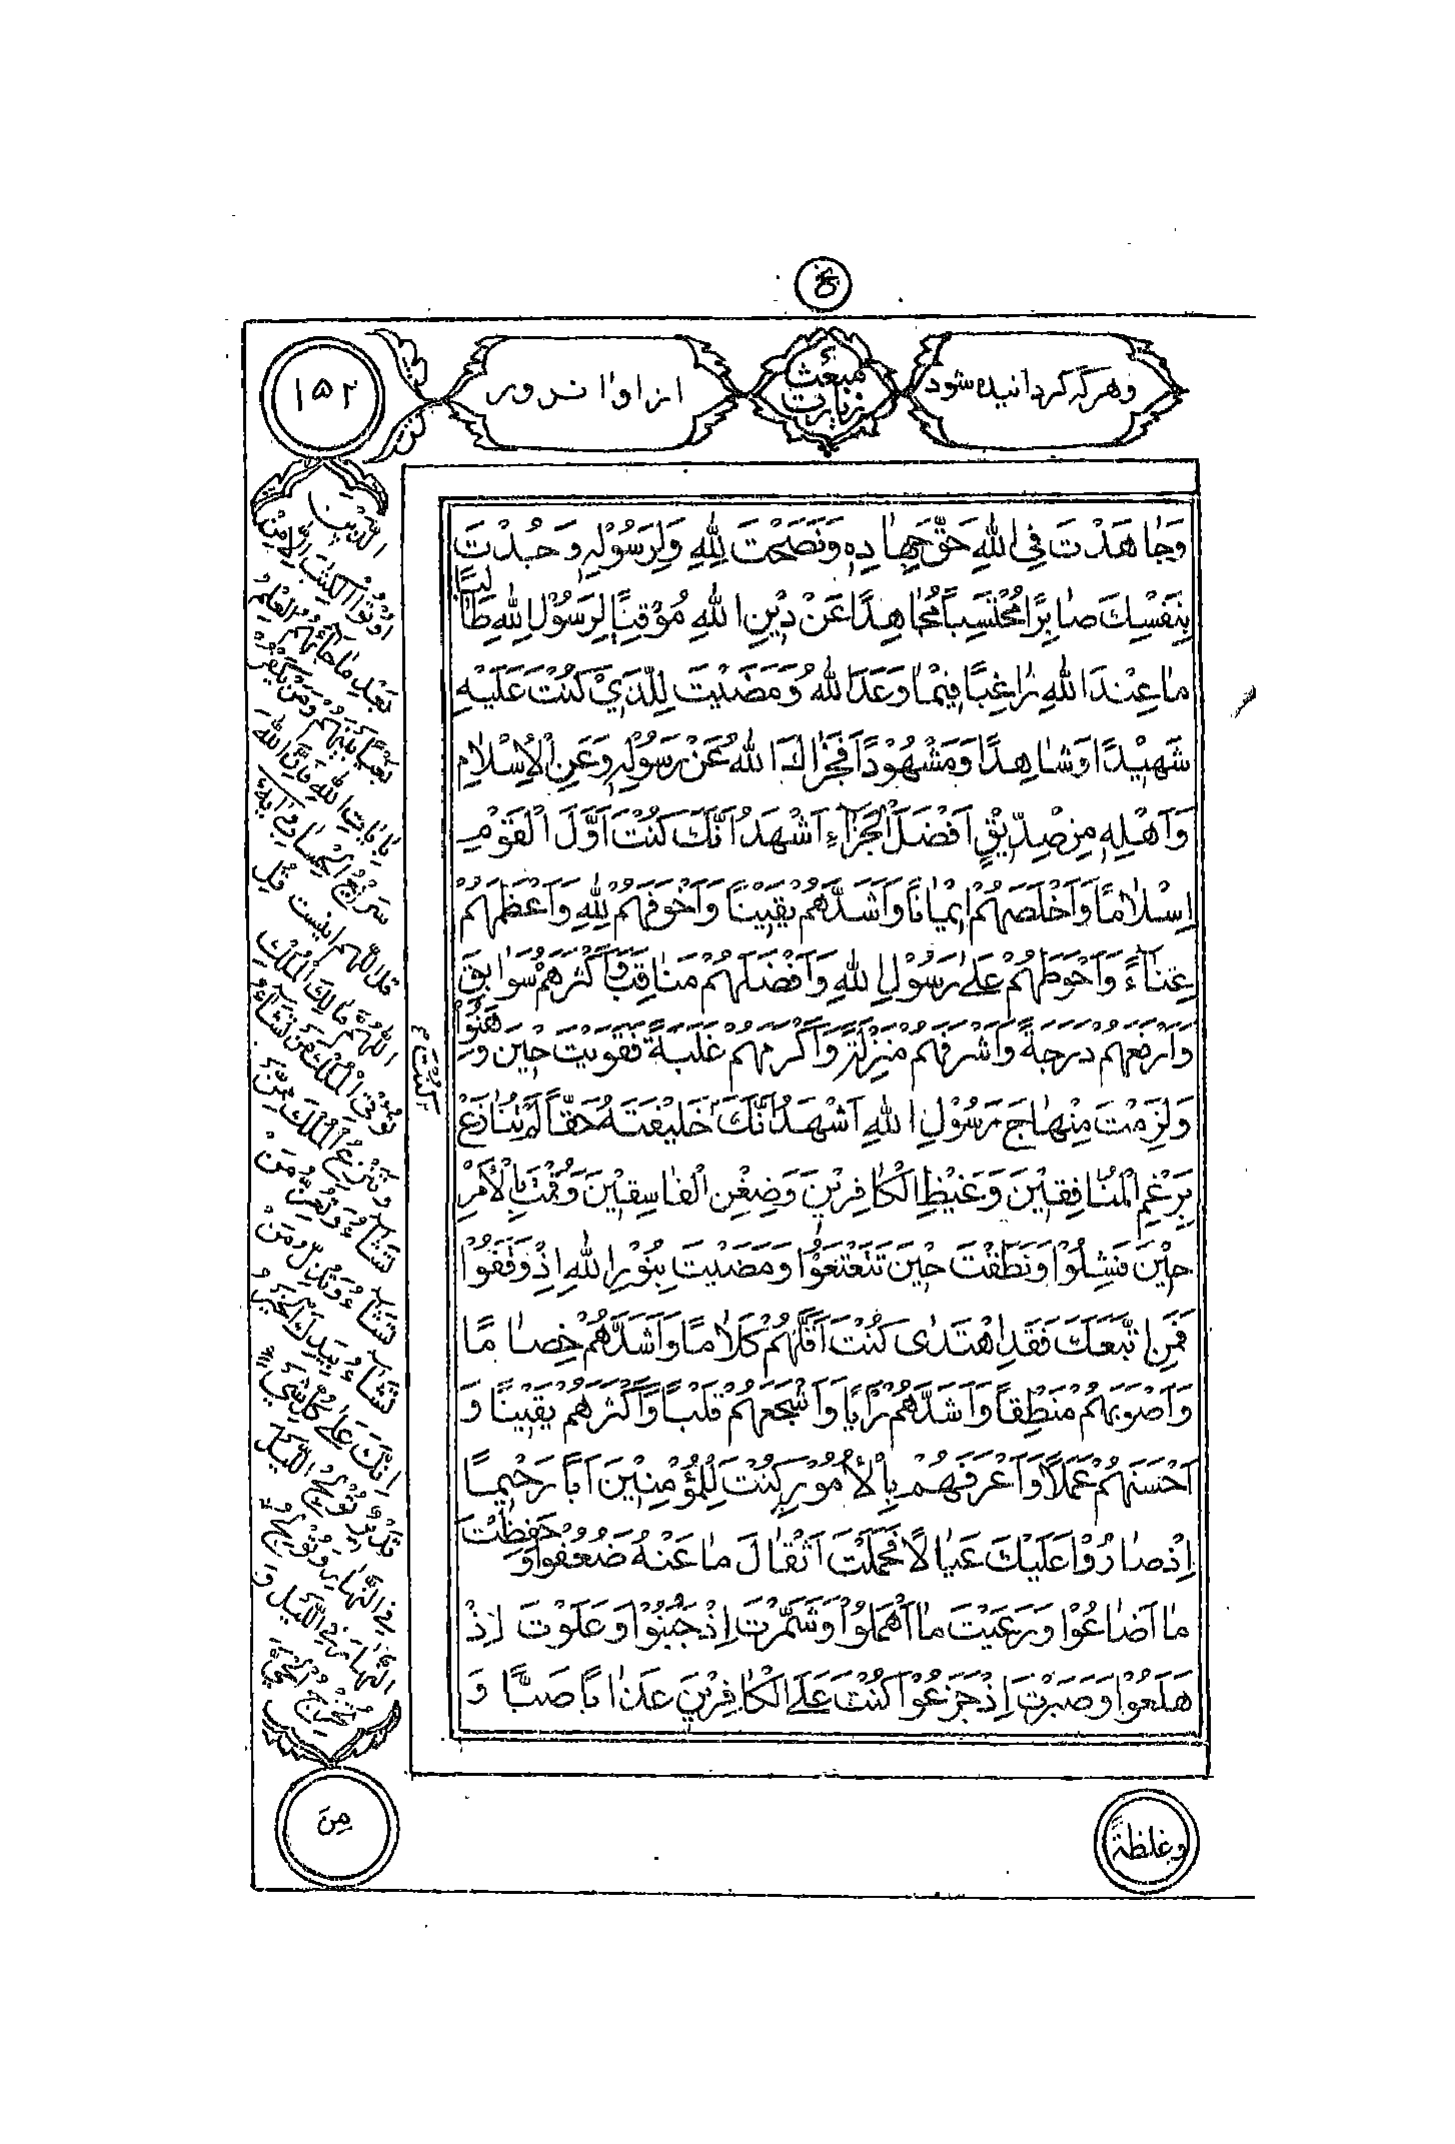 وهر که گردانیده شود
مبعث
زیارت
از او اندرور
۱۵۲
وَجاهَدْتَ فِى اللهِ حَقَّ جِهادِهِ وَنَصَحْتَ لِلّهِ وَلِرَسُوْلِهِ وَجُدْتَ
بِنَفْسِكَ صابِرًا مُحْتَسِبًا مُجاهِدًا عَنْ دِيْنِ اللهِ مُوْقِنًا لِرَسُوْلِ اللهِ طالِبًا
ما عِنْدَ اللهِ راغِبًا فِيْما وَعَدَ اللهُ وَمَضَيْتَ لِلَّذِيْ كُنْتَ عَلَيْهِ
شَهِيْدًا وَشاهِدًا وَمَشْهُوْدًا فَجَزاكَ اللهُ عَنْ رَسُوْلِهِ وَعَنِ الْاِسْلامِ
وَاَهْلِهِ مِنْ صِدِّيْقٍ اَفْضَلَ الْجَزاءِ اَشْهَدُ اَنَّكَ كُنْتَ اَوَّلَ الْقَوْمِ
اِسْلامًا وَاَخْلَصَهُمْ اِيْمانًا وَاَشَدَّهُمْ يَقِيْنًا وَاَخْوَفَهُمْ لِلّهِ وَاَعْظَمَهُمْ
عَناءً وَاَحْوَطَهُمْ عَلى رَسُوْلِ اللهِ وَاَفْضَلَهُمْ مَناقِبَ وَاَكْثَرَهُمْ سَوابِقَ
وَاَرْفَعَهُمْ دَرَجَةً وَاَشْرَفَهُمْ مَنْزِلَةً وَاَكْرَمَهُمْ عَلَيْهِ فَقَوِيْتَ حِيْنَ وَهَنُوْا
وَلَزِمْتَ مِنْهاجَ رَسُوْلِ اللهِ اَشْهَدُ اَنَّكَ خَلِيْفَتَهُ حَقًّا لَمْ تُنازَعْ
بِرَغْمِ الْمُنافِقِيْنَ وَغَيْظِ الْكافِرِيْنَ وَضِغْنِ الْفاسِقِيْنَ وَقُمْتَ بِالْاَمْرِ
حِيْنَ فَشِلُوْا وَنَطَقْتَ حِيْنَ تَتَعْتَعُوْا وَمَضَيْتَ بِنُوْرِ اللهِ اِذْ وَقَفُوْا
فَمَنِ اتَّبَعَكَ فَقَدِ اهْتَدى كُنْتَ اَقَلَّهُمْ كَلامًا وَاَشَدَّهُمْ خِصامًا
وَاَصْوَبَهُمْ مَنْطِقًا وَاَشَدَّهُمْ رَأْيًا وَاَشْجَعَهُمْ قَلْبًا وَاَكْثَرَهُمْ يَقِيْنًا وَ
اَحْسَنَهُمْ عَمَلًا وَاَعْرَفَهُمْ بِالْاُمُوْرِ كُنْتَ لِلْمُؤْمِنِيْنَ اَبًا رَحِيْمًا
اِذْ صارُوْا عَلَيْكَ عِيالًا فَحَمَلْتَ اَثْقالَ ما عَنْهُ ضَعُفُوْا وَحَفِظْتَ
ما اَضاعُوْا وَرَعَيْتَ ما اَهْمَلُوْا وَشَمَّرْتَ اِذْ جَبُنُوْا وَعَلَوْتَ اِذْ
هَلَعُوْا وَصَبَرْتَ اِذْ جَزَعُوْا كُنْتَ عَلَى الْكافِرِيْنَ عَذابًا صَبًّا وَ
وَغِلْظَةً
الَّذِيْنَ
اُوْتُوا الْكِتابَ اِلّا مِنْ
بَعْدِ ما جاءَهُمُ الْعِلْمُ
بَغْيًا بَيْنَهُمْ وَمَنْ يَكْفُرْ
بِاياتِ اللهِ فَاِنَّ اللهَ
سَرِيْعُ الْحِسابِ وَايه
قل اللهم اینست قُلِ
اللّهُمَّ مالِكَ الْمُلْكِ
تُؤْتِى الْمُلْكَ مَنْ تَشاءُ
وَتَنْزِعُ الْمُلْكَ مِمَّنْ
تَشاءُ وَتُعِزُّ مَنْ
تَشاءُ وَتُذِلُّ مَنْ
تَشاءُ بِيَدِكَ الْخَيْرُ
اِنَّكَ عَلى كُلِّ شَيْءٍ
قَدِيْرٌ تُوْلِجُ اللَّيْلَ
فِى النَّهارِ وَتُوْلِجُ
النَّهارَ فِى اللَّيْلِ وَ
تُخْرِجُ الْحَيَّ
مِنَ